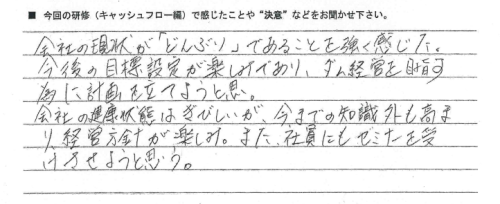 ■ 今回の研修（キャッシュフロー編）で感じたことや“決意”などをお聞かせ下さい。
会社の現状が「どんぶり」であることを強く感じた。
今後の目標設定が楽しみであり、ダム経営を目指す
為に計画を立てようと思。
会社の健康状態はきびしいが、今までの知識外も高ま
り、経営方針が楽しみ。また、社員にもセミナーを受
けさせようと思う。